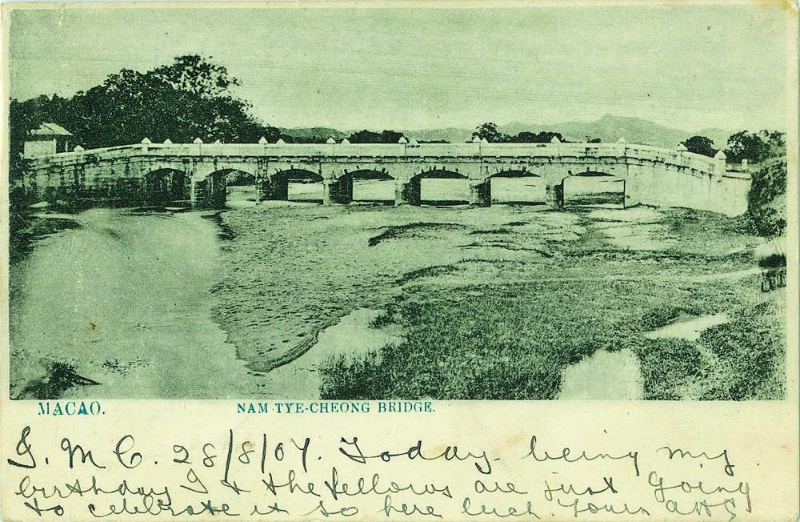 MACAO.
NAM-TYE-CHEONG BRIDGE.
I. M. C. 28/8/07. Today being my
birthday I & the fellows are just going
to celebrate it so here luck. Yours